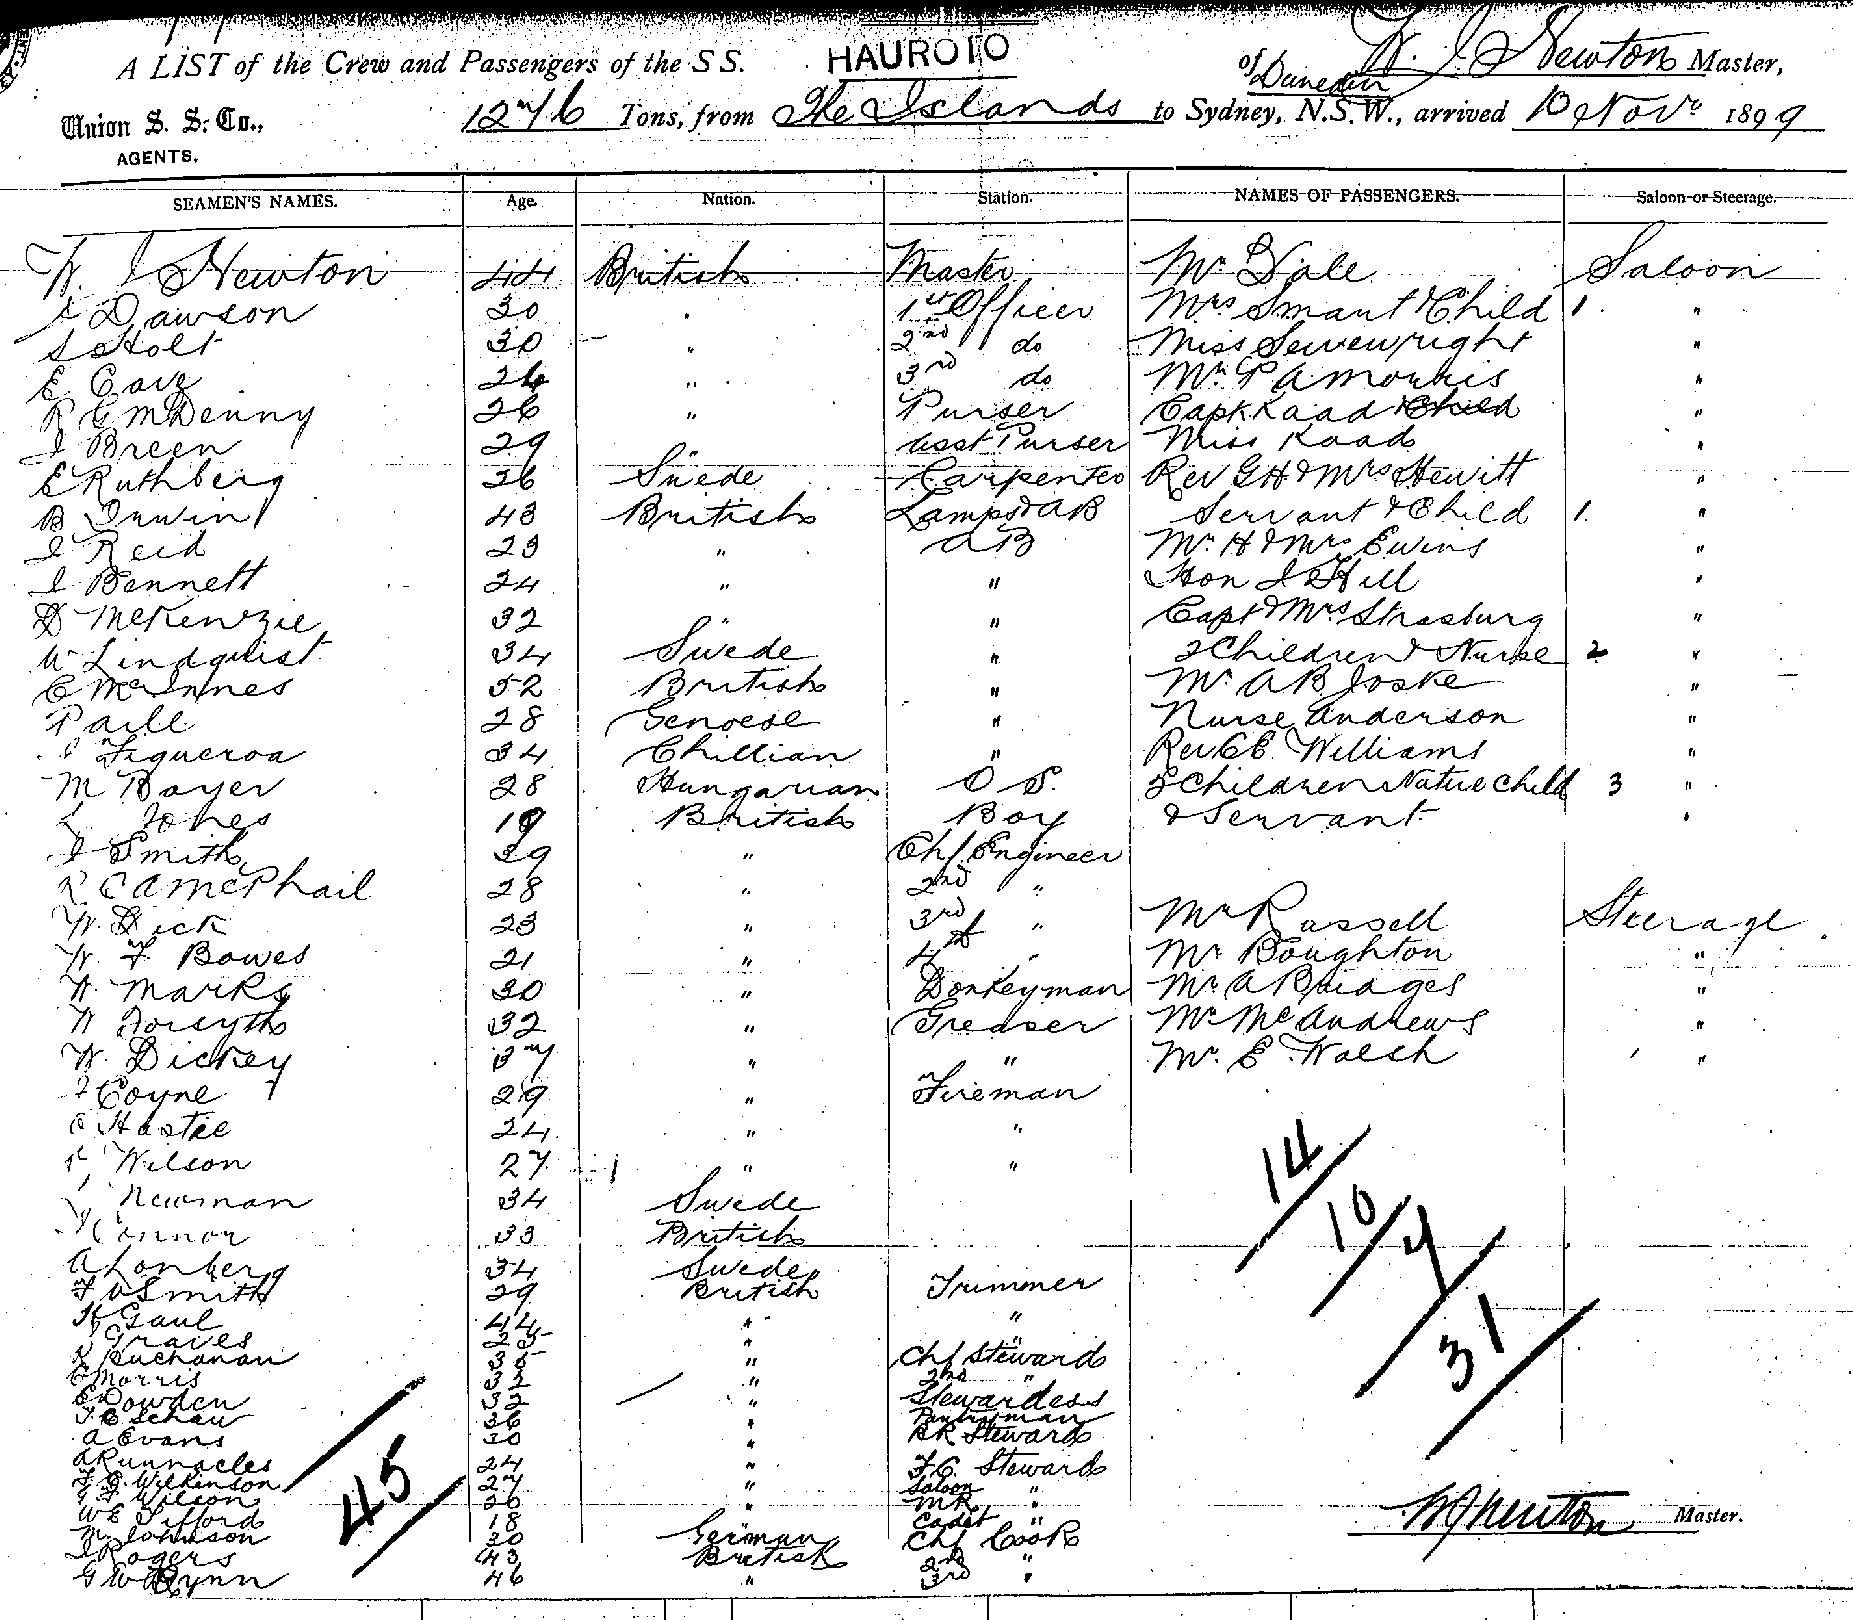 A LIST of the Crew and Passengers of the S S. HAUROTO of Dunedin W. J Newton Master,
Union S. S. Co., 1276 Tons, from The Islands to Sydney, N.S.W., arrived 10 Novr 1899
AGENTS.
SEAMEN'S NAMES. Age. Nation. Station. NAMES OF PASSENGERS. Saloon or Steerage.
W. J Newton 44 British Master Mr Dale Saloon
Dawson 30 " 1st Officer Mrs Smart & Child 1 "
S Holt 30 " 2nd do Miss Seivewright "
E 26 " 3rd do Mr P A Morris "
R G McDenny 26 " Purser Capt Kaad & Child "
J Breen 29 " Asst Purser Miss Kaad "
E Ruthberg 26 Swede Carpenter Rev G H & Mrs Hewitt "
B Irwin 43 British Lamps & AB Servant & Child 1. "
J Reid 23 " AB Mr H & Mrs Ewins "
J Bennett 24 " " Hon J Hill "
D McKenzie 32 " " Capt & Mrs Strasburg "
W Lindquist 34 Swede " 2 Children & Nurse 2 "
C McInnes 52 British " Mr A B Joske "
28 Genoese " Nurse Anderson "
Figueroa 34 Chillian " Rev Williams "
M Bayer 28 Hungarian O S. Children Native Child 3 "
Jones 19 British Boy & Servant "
J Smith 39 " Chf Engineer
C A McPhail 28 " 2nd "
W. Dick 23 " 3rd " Mr Russell Steerage
W. F Bowes 21 " 4th " Mr Boughton "
W Marks 30 " Donkeyman Mr A Bridges "
W Forsyth 32 " Greaser Mr McAndrews "
W. Dickey 37 " " Mr. E Walsh "
Coyne 29 " Fireman
Hastie 24 " "
Wilson 27 " "
Newman 34 Swede
Connor 33 British
A Lonberg 34 Swede
F Smith 29 British Trimmer
H Gaul 44 " "
Graves 25 " "
Buchanan 35 " Chf Steward
Morris 32 " 2nd "
E Dowden 32 " Stewardess
Schaw 36 " Pantryman
A Evans 30 " Steward
A Runnacles 24 " F.C. Steward
F G. Wilkinson 27 " Saloon "
Wilson 20 " "
W E Tifford 18 " Cadet "
Johnson 30 German Chf Cook
J Rogers 43 British 2nd "
G W Rynn 46 " 3rd "
14
10
7
31
45
W J Newton Master.